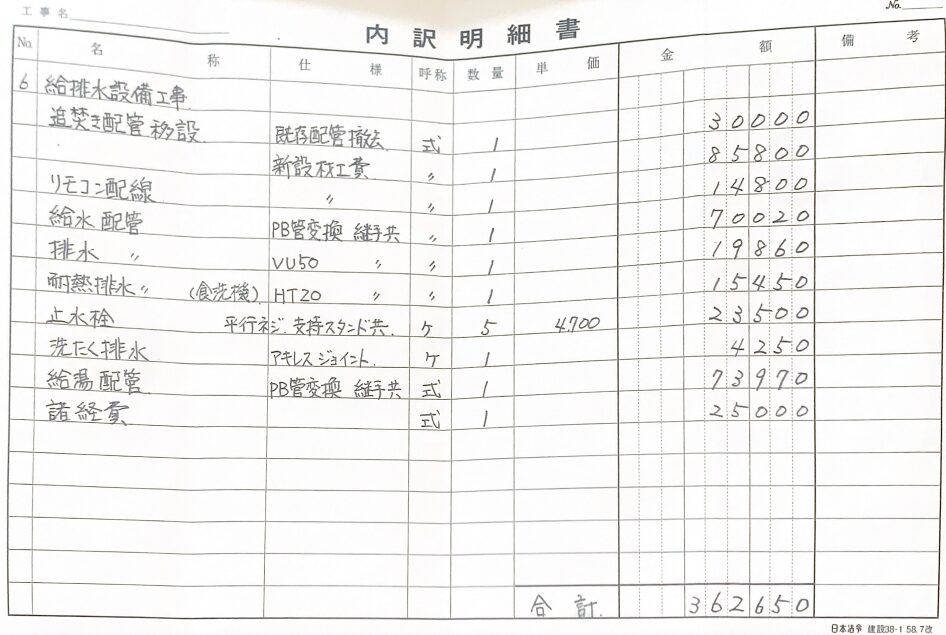 工事名
No.
内訳明細書
No. 名称 仕様 呼称 数量 単価 金額 備考
6 給排水設備工事
追焚き配管移設 既存配管撤去 式 1 30000
新設材工費 〃 1 85800
リモコン配線 〃 〃 1 14800
給水配管 PB管変換 継手共 〃 1 70020
排水 〃 VU50 〃 〃 1 19860
耐熱排水〃 (食洗機) HT20 〃 〃 1 15450
止水栓 平行ネジ.支持スタンド共. ケ 5 4,700 23500
洗たく排水 アキレスジョイント. ケ 1 4250
給湯配管 PB管変換 継手共 式 1 73970
諸経費 式 1 25000
合計. 362650
日本法令 建設38-1 58.7改